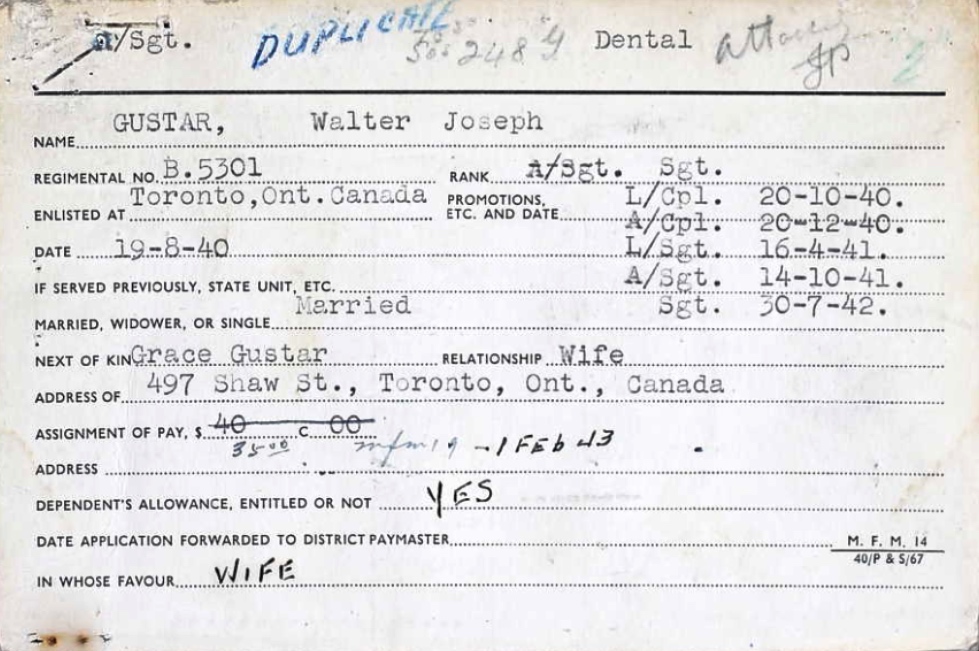 a/Sgt. DUPLICATE Dental
NAME GUSTAR, Walter Joseph
REGIMENTAL NO. B.5301 RANK A/Sgt. Sgt.
ENLISTED AT Toronto,Ont.Canada PROMOTIONS, ETC. AND DATE L/Cpl. 20-10-40.
A/Cpl. 20-12-40.
DATE 19-8-40 L/Sgt. 16-4-41.
IF SERVED PREVIOUSLY, STATE UNIT, ETC. A/Sgt. 14-10-41.
MARRIED, WIDOWER, OR SINGLE Married Sgt. 30-7-42.
NEXT OF KIN Grace Gustar RELATIONSHIP Wife
ADDRESS OF 497 Shaw St., Toronto, Ont., Canada
ASSIGNMENT OF PAY, $ 40 C 00
35 00 mfm 19 - 1 FEB 43
ADDRESS
DEPENDENT'S ALLOWANCE, ENTITLED OR NOT YES
DATE APPLICATION FORWARDED TO DISTRICT PAYMASTER
M. F. M. 14
40/P & S/67
IN WHOSE FAVOUR WIFE